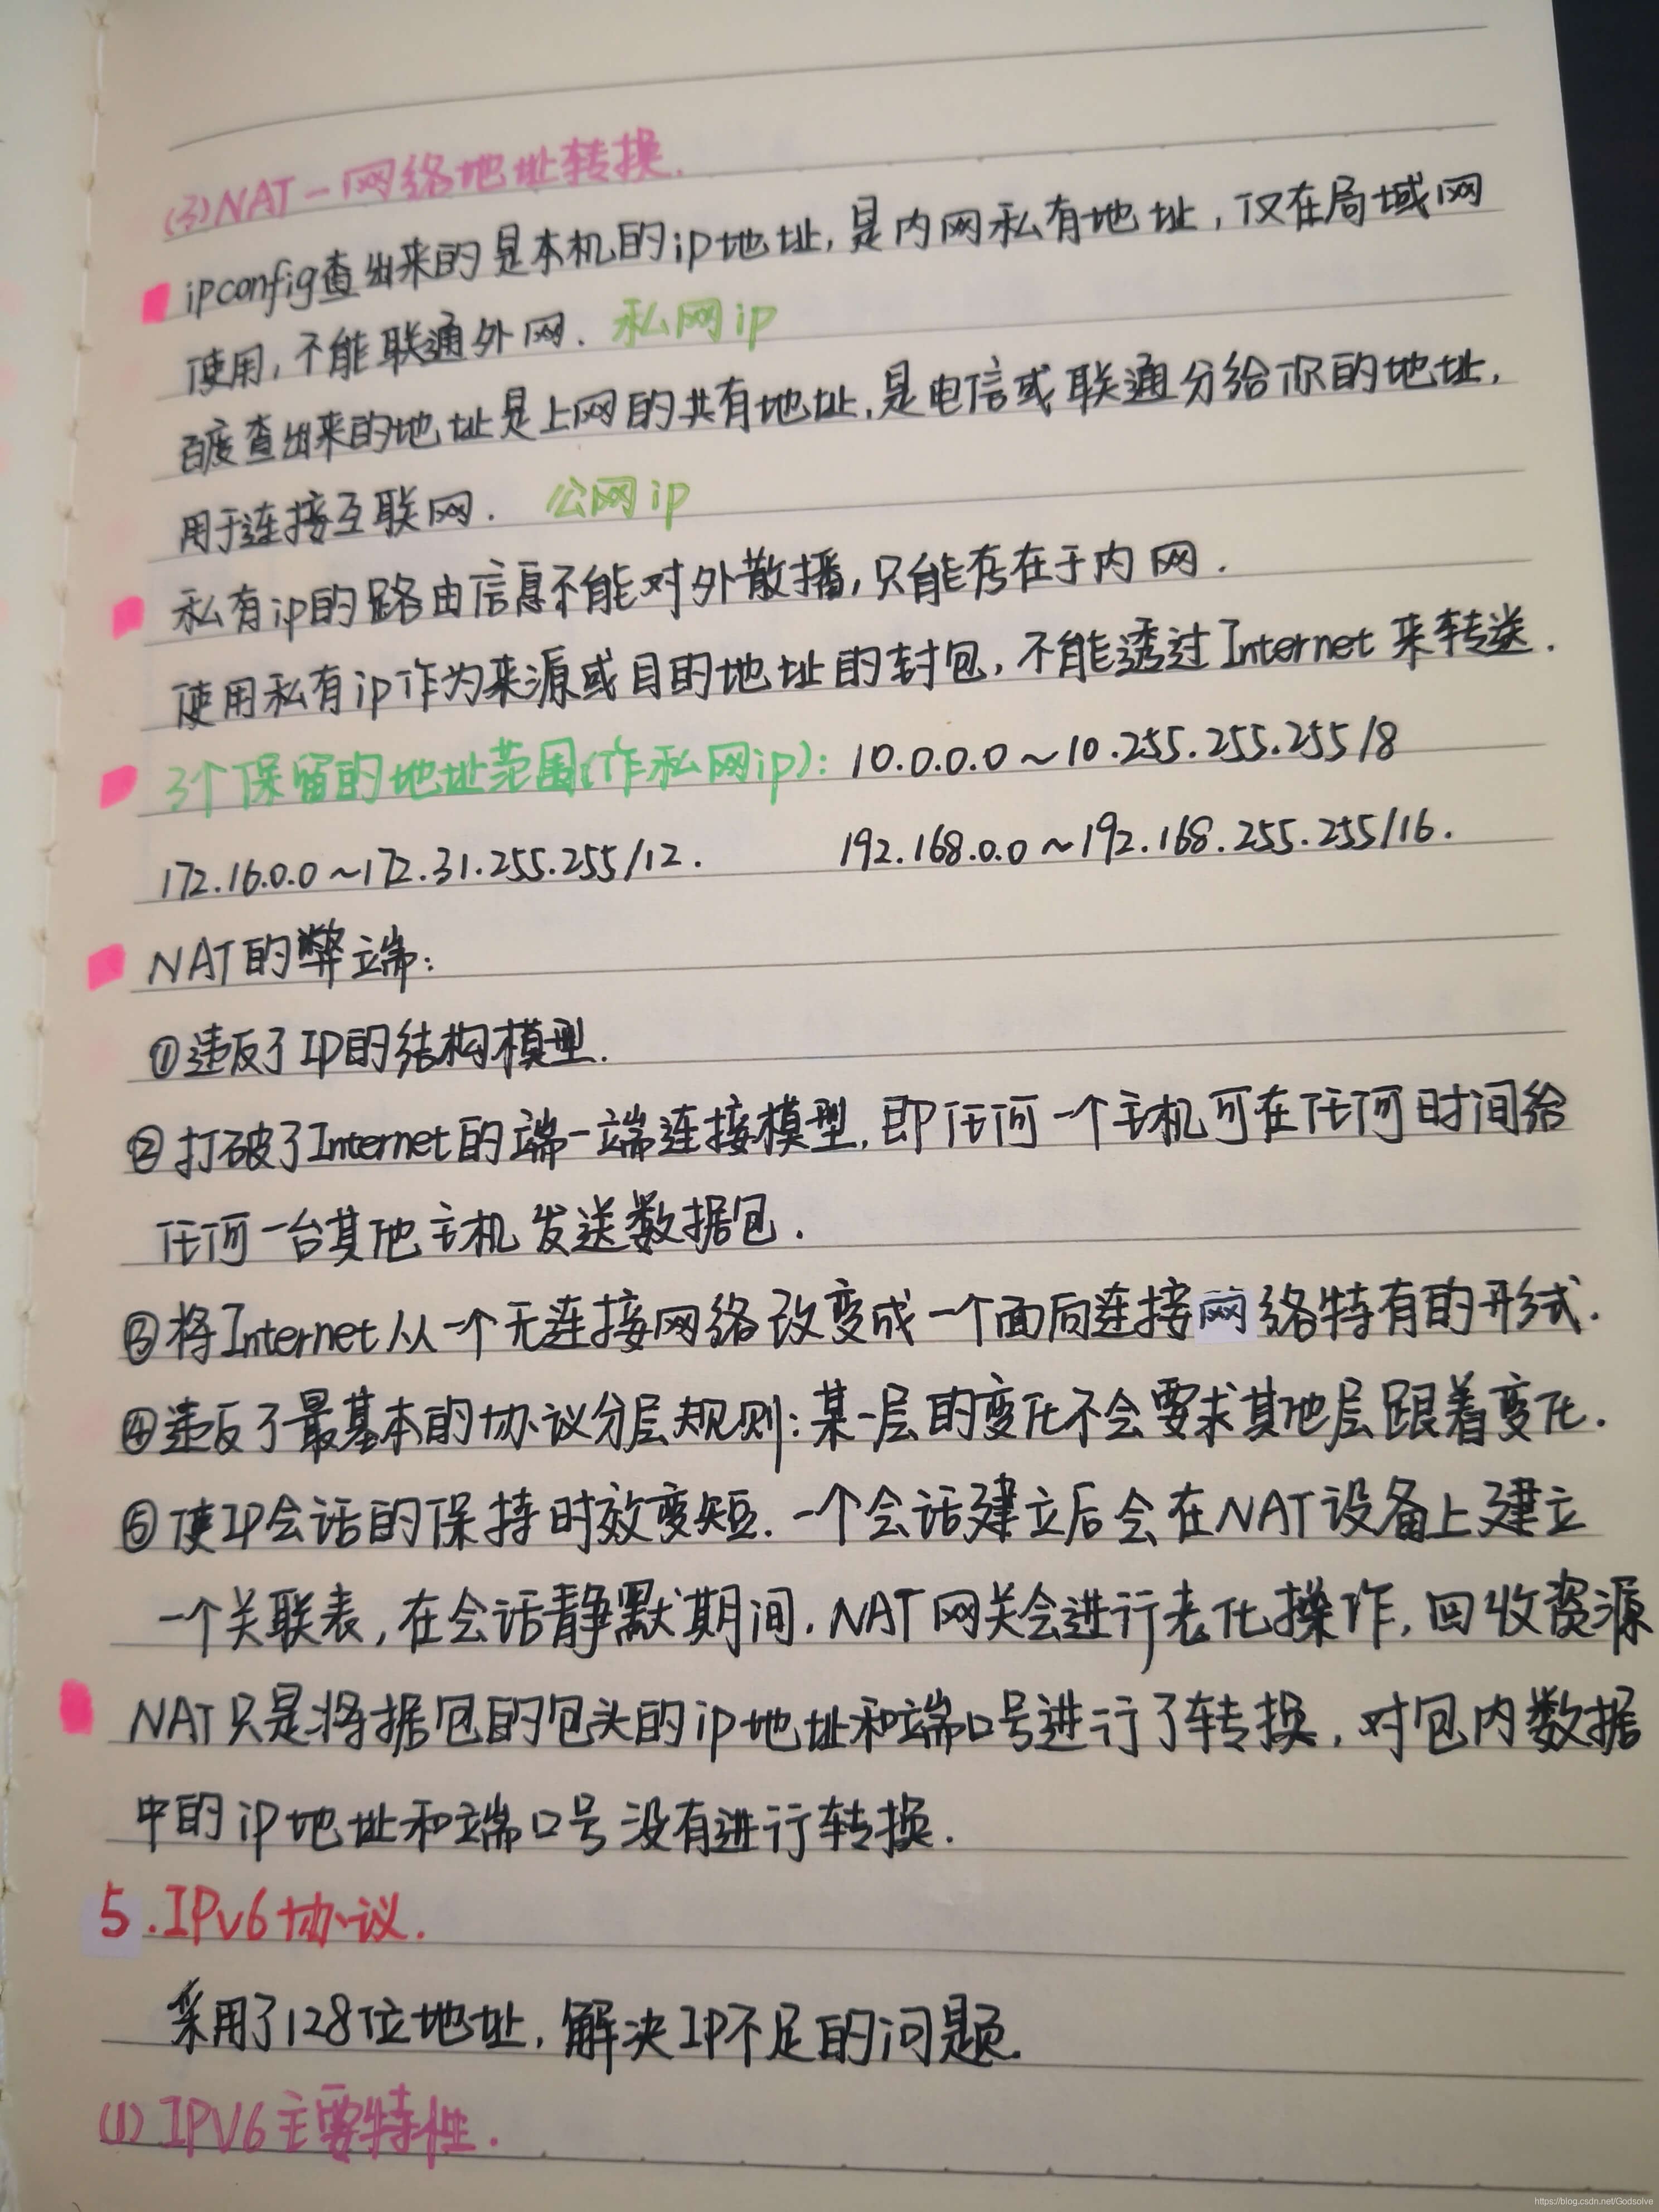 (3)NAT-网络地址转换.
ipconfig查出来的是本机的ip地址,是内网私有地址,仅在局域网
使用,不能联通外网. 私网ip
百度查出来的地址是上网的共有地址,是电信或联通分给你的地址,
用于连接互联网. 公网ip
私有ip的路由信息不能对外散播,只能存在于内网.
使用私有ip作为来源或目的地址的封包,不能透过Internet来转送.
3个保留的地址范围(作私网ip): 10.0.0.0~10.255.255.255/8
172.16.0.0~172.31.255.255/12. 192.168.0.0~192.168.255.255/16.
NAT的弊端:
①违反了IP的结构模型.
②打破了Internet的端-端连接模型,即任何一个主机可在任何时间给
任何一台其他主机发送数据包.
③将Internet从一个无连接网络改变成一个面向连接网络特有的形式.
④违反了最基本的协议分层规则:某一层的变化不会要求其他层跟着变化.
⑤使IP会话的保持时效变短.一个会话建立后会在NAT设备上建立
一个关联表,在会话静默期间,NAT网关会进行老化操作,回收资源
NAT只是将据包的包头的ip地址和端口号进行了转换,对包内数据
中的ip地址和端口号没有进行转换.
5.IPv6协议.
采用了128位地址,解决IP不足的问题.
(1)IPV6主要特性.
https://blog.csdn.net/Godsolve